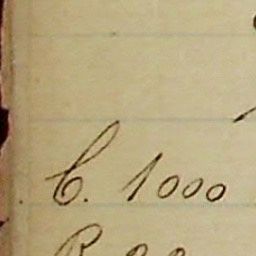 C. 1000